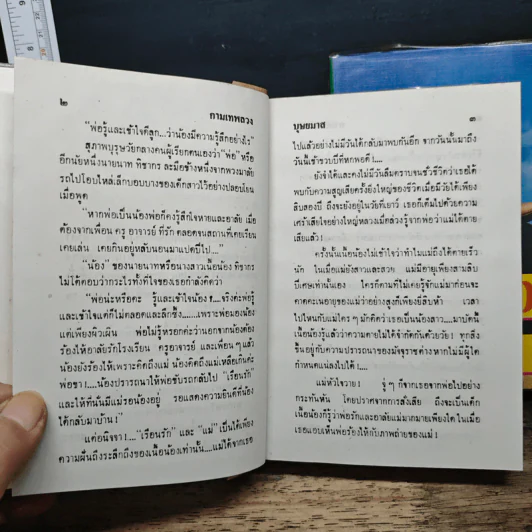 ๒ กามเทพลวง
"พ่อรู้และเข้าใจดีลูก...ว่าน้องมีความรู้สึกอย่างไร"
สุภาพบุรุษวัยกลางคนผู้เรียกตนเองว่า "พ่อ" หรือ
อีกนัยหนึ่งนายนาท ทิชากร ละมือข้างหนึ่งจากพวงมาลัย
รถไปโอบไหล่เล็กบอบบางของเด็กสาวไว้อย่างปลอบโยน
เมื่อพูด
"หากพ่อเป็นน้องพ่อก็คงรู้สึกใจหายและอาลัย เมื่อ
ต้องจากเพื่อน ครู อาจารย์ ที่รัก ตลอดจนสถานที่เคยเรียน
เคยเล่น เคยกินอยู่หลับนอนมาแปดปี...."
"น้อง" ของนายนาทหรือนางสาวเนื้อน้อง ทิชากร
ไม่ได้ตอบว่ากระไรทั้งที่ใจของเธอกำลังคิดว่า
"พ่อน่ะหรือคะ รู้และเข้าใจน้อง!....จริงค่ะพ่อรู้
และเข้าใจแต่ก็ไม่ตลอดและลึกซึ้ง......เพราะพ่อมองน้อง
แต่เพียงผิวเผิน พ่อไม่รู้หรอกค่ะว่านอกจากน้องต้อง
ร้องไห้อาลัยรักโรงเรียน ครูอาจารย์ และเพื่อนๆ แล้ว
น้องยังร้องไห้เพราะคิดถึงแม่ น้องคิดถึงแม่เหลือเกินค่ะ
พ่อขา!....น้องปรารถนาให้พ่อขับรถกลับไป "เรือนรัก"
และให้ที่นั่นมีแม่รอน้องอยู่ รอแสดงความยินดีที่น้อง
ได้กลับมาบ้าน!"
แต่อนิจจา!...."เรือนรัก" และ "แม่" เป็นได้เพียง
ความฝันถึงระลึกถึงของเนื้อน้องเท่านั้น....แม่ได้จากเธอ
บุษยมาส ๓
ไปแล้วอย่างไม่มีวันได้กลับมาพบกันอีก จากวันนั้นมาถึง
วันนี้เข้าขวบปีที่หกพอดี!....
ยังจำได้และคงไม่มีวันลืมตราบจนชั่วชีวิตว่าเธอได้
พบกับความสูญเสียครั้งยิ่งใหญ่ของชีวิตเมื่อมีวัยได้เพียง
สิบสองปี ถึงจะยังอยู่ในวัยที่เยาว์ เธอก็เต็มไปด้วยความ
เศร้าเสียใจอย่างใหญ่หลวงเมื่อล่วงรู้จากพ่อว่าแม่ได้ตาย
เสียแล้ว!
ครั้งนั้นเนื้อน้องไม่เข้าใจว่าทำไมแม่ถึงได้ตายเร็ว
นัก ในเมื่อแม่ยังสาวและสวย แม่มีอายุเพียงสามสิบ
ปีเศษเท่านั้นเอง ใครก็ตามที่ไม่เคยรู้จักแม่มาก่อนจะ
คาดคะเนอายุของแม่ว่าอย่างสูงก็เพียงยี่สิบห้า เวลา
ไปไหนกับแม่ใครๆ มักคิดว่า เธอเป็นน้องสาว....มาบัดนี้
เนื้อน้องรู้แล้วว่าความตายไม่ได้จำกัดกันด้วยวัย! ทุกสิ่ง
ขึ้นอยู่กับความปรารถนาของมัจจุราชต่างหากไม่มีผู้ใด
กำหนดแน่ลงไปได้!....
แม่หัวใจวาย! จู่ๆ ก็จากเธอจากพ่อไปอย่าง
กระทันหัน โดยปราศจากการสั่งเสีย ถึงจะเป็นเด็ก
เนื้อน้องก็รู้ว่าพ่อรักและอาลัยแม่มากมายเพียงใด ในเมื่อ
เธอแอบเห็นพ่อร้องไห้กับภาพถ่ายของแม่!